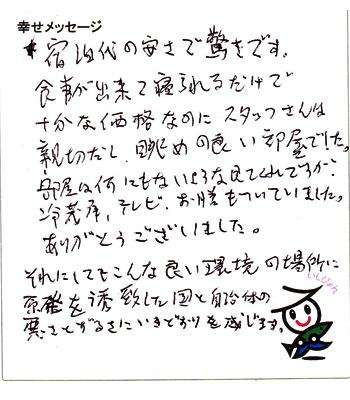 幸せメッセージ
宿泊代の安さで驚きです。
食事が出来て寝られるだけで
十分な価格なのにスタッフさんは
親切だし、眺めの良い部屋でした。
部屋は何にもないような見てくれですが、
冷蔵庫、テレビ、お膳もついていました。
ありがとうございました。
それにしてもこんな良い環境の場所に
原発を誘致した国と自治体の
悪さとずるさにいきどおりを感じます。